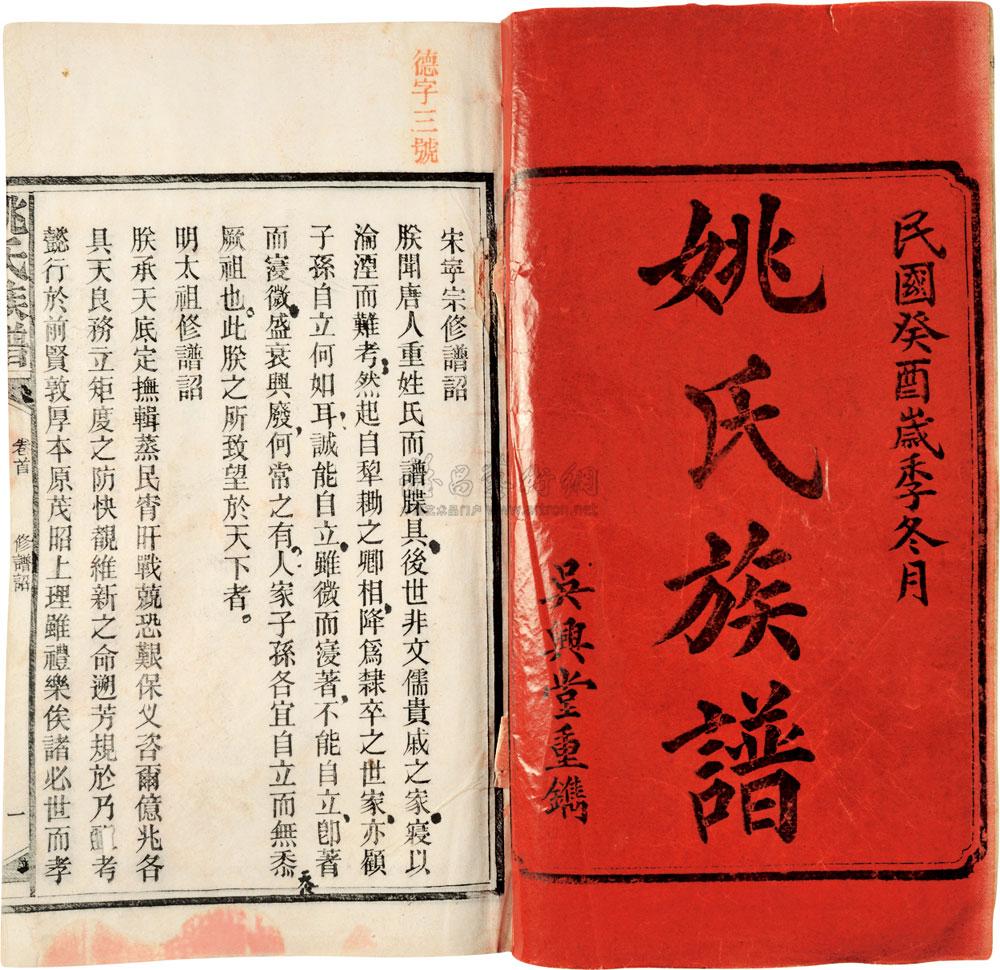 民國癸酉歲季冬月
姚氏族譜
吳興堂重鐫
德字三號
宋寧宗修譜詔
朕聞唐人重姓氏而譜牒具後世非文儒貴戚之家寖以
淪湮而難考然起自犁鋤之卿相降爲隸卒之世家亦顧
子孫自立何如耳誠能自立雖微而寖著不能自立卽著
而寖微盛衰興廢何常之有人家子孫各宜自立而無忝
厥祖也此朕之所致望於天下者。
明太祖修譜詔
朕承天底定撫輯蒸民宵旰戰兢恐艱保乂咨爾億兆各
具天良務立矩度之防快覩維新之命遡芳規於乃考
懿行於前賢敦厚本原茂昭上理雖禮樂俟諸必世而孝
姚氏族譜
卷首
修譜詔
一
雅昌艺术网
www.artron.net